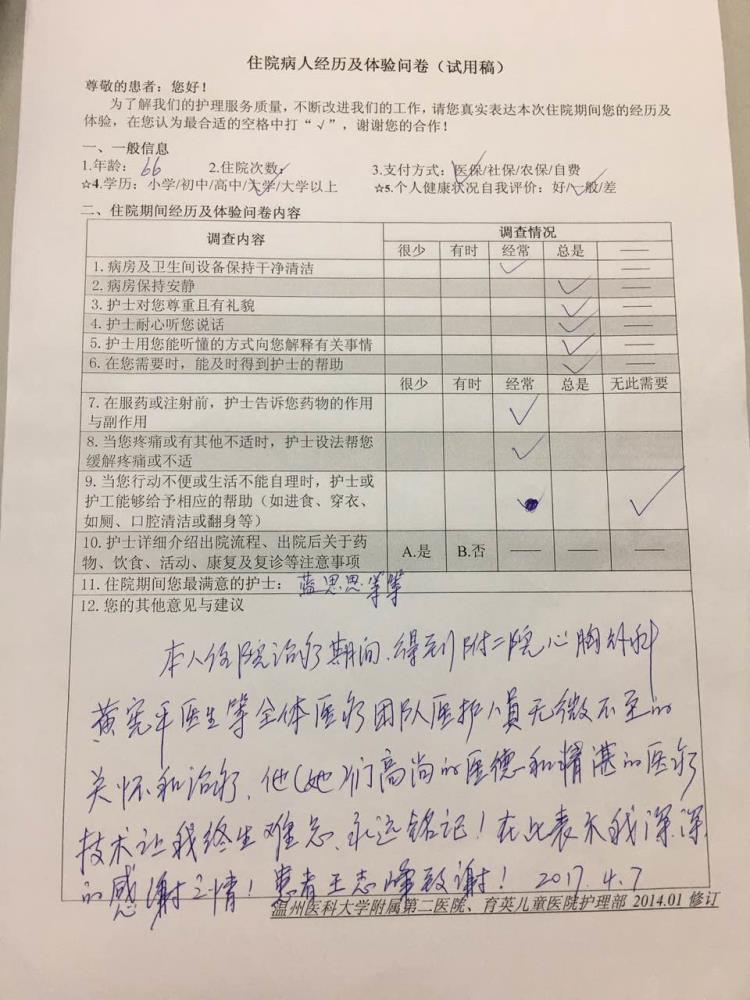 住院病人经历及体验问卷（试用稿）
尊敬的患者：您好！
为了解我们的护理服务质量，不断改进我们的工作，请您真实表达本次住院期间您的经历及
体验，在您认为最合适的空格中打“√”，谢谢您的合作！
一、一般信息
1.年龄： 66 2.住院次数： 3.支付方式：医保/社保/农保/自费
☆4.学历：小学/初中/高中/大学/大学以上 ☆5.个人健康状况自我评价：好/一般/差
二、住院期间经历及体验问卷内容
调查内容 调查情况
很少 有时 经常 总是 ——
1.病房及卫生间设备保持干净清洁 √
2.病房保持安静 √
3.护士对您尊重且有礼貌 √
4.护士耐心听您说话 √
5.护士用您能听懂的方式向您解释有关事情 √
6.在您需要时，能及时得到护士的帮助 √
很少 有时 经常 总是 无此需要
7.在服药或注射前，护士告诉您药物的作用
与副作用 √
8.当您疼痛或有其他不适时，护士设法帮您
缓解疼痛或不适 √
9.当您行动不便或生活不能自理时，护士或
护工能够给予相应的帮助（如进食、穿衣、
如厕、口腔清洁或翻身等） √
10.护士详细介绍出院流程、出院后关于药
物、饮食、活动、康复及复诊等注意事项 A.是 B.否 —— —— ——
11.住院期间您最满意的护士：蓝思思等等
12.您的其他意见与建议
本人住院治疗期间、得到附二院心胸外科
黄宪平医生等全体医疗团队医护人员无微不至的
关怀和治疗、他(她)们高尚的医德和精湛的医疗
技术让我终生难忘、永远铭记！在此表示我深深
的感谢之情！患者王志峰致谢！ 2017.4.7
温州医科大学附属第二医院、育英儿童医院护理部 2014.01 修订